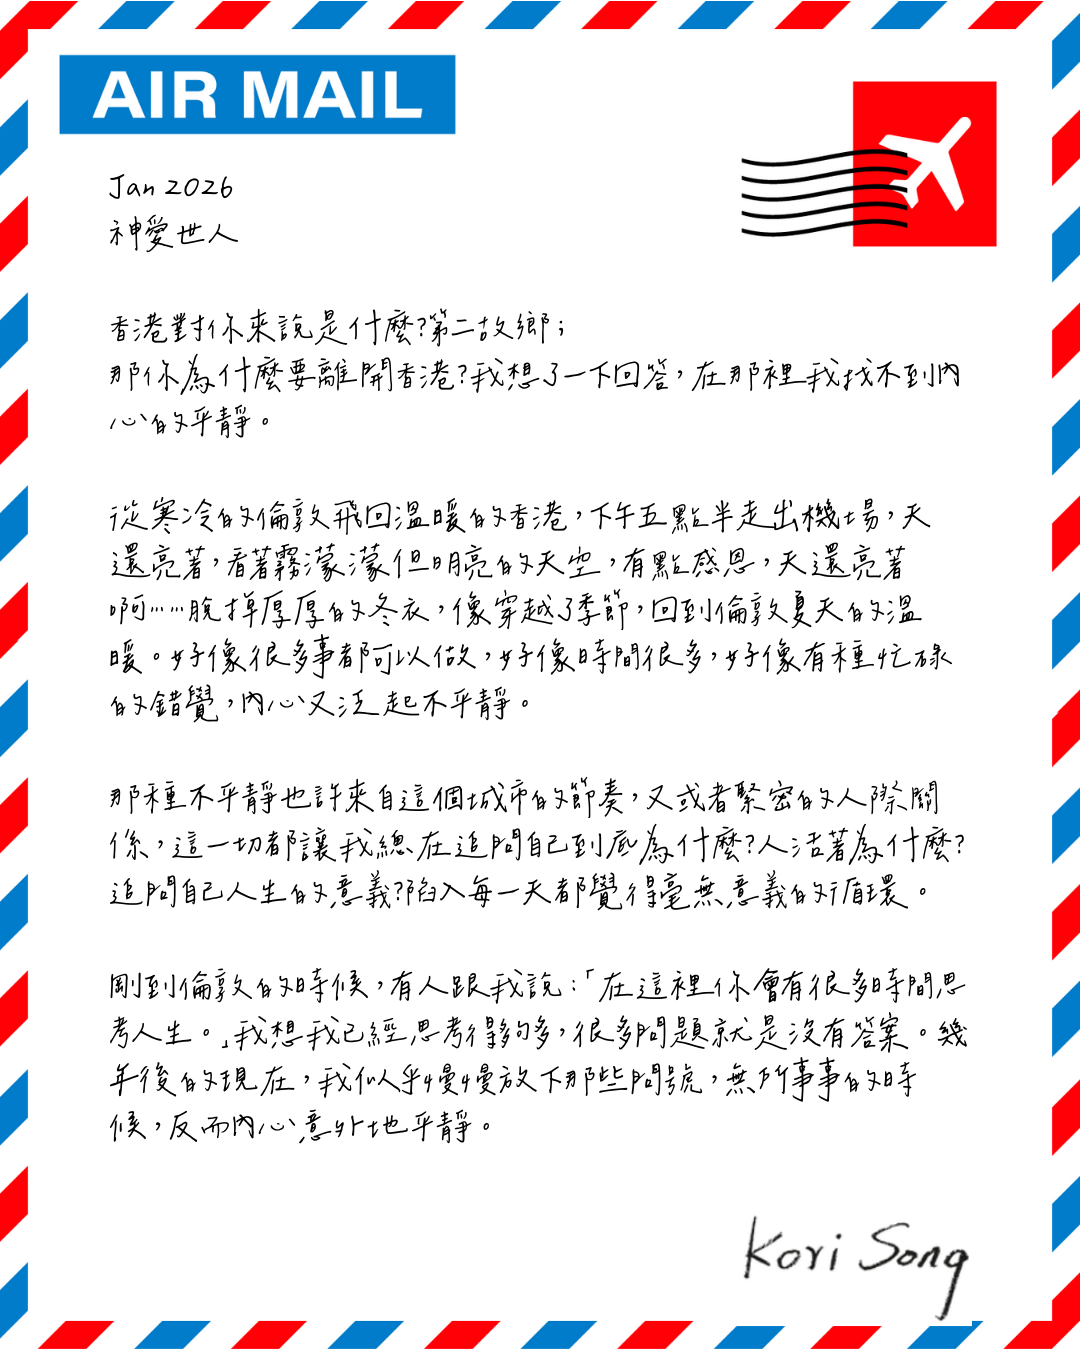 AIR MAIL
Jan 2026
神愛世人
香港對你來說是什麼?第二故鄉;
那你為什麼要離開香港?我想了一下回答,在那裡我找不到內
心的平靜。
從寒冷的倫敦飛回溫暖的香港,下午五點半走出機場,天
還亮著,看著霧濛濛但明亮的天空,有點感恩,天還亮著
啊……脫掉厚厚的冬衣,像穿越了季節,回到倫敦夏天的溫
暖。好像很多事都可以做,好像時間很多,好像有種忙碌
的錯覺,內心又泛起不平靜。
那種不平靜也許來自這個城市的節奏,又或者緊密的人際關
係,這一切都讓我總在追問自己到底為什麼?人活著為什麼?
追問自己人生的意義?陷入每一天都覺得毫無意義的循環。
剛到倫敦的時候,有人跟我說:「在這裡你會有很多時間思
考人生。」我想我已經思考得夠多,很多問題就是沒有答案。幾
年後的現在,我似乎慢慢放下那些問號,無所事事的時
候,反而內心意外地平靜。
Kori Song